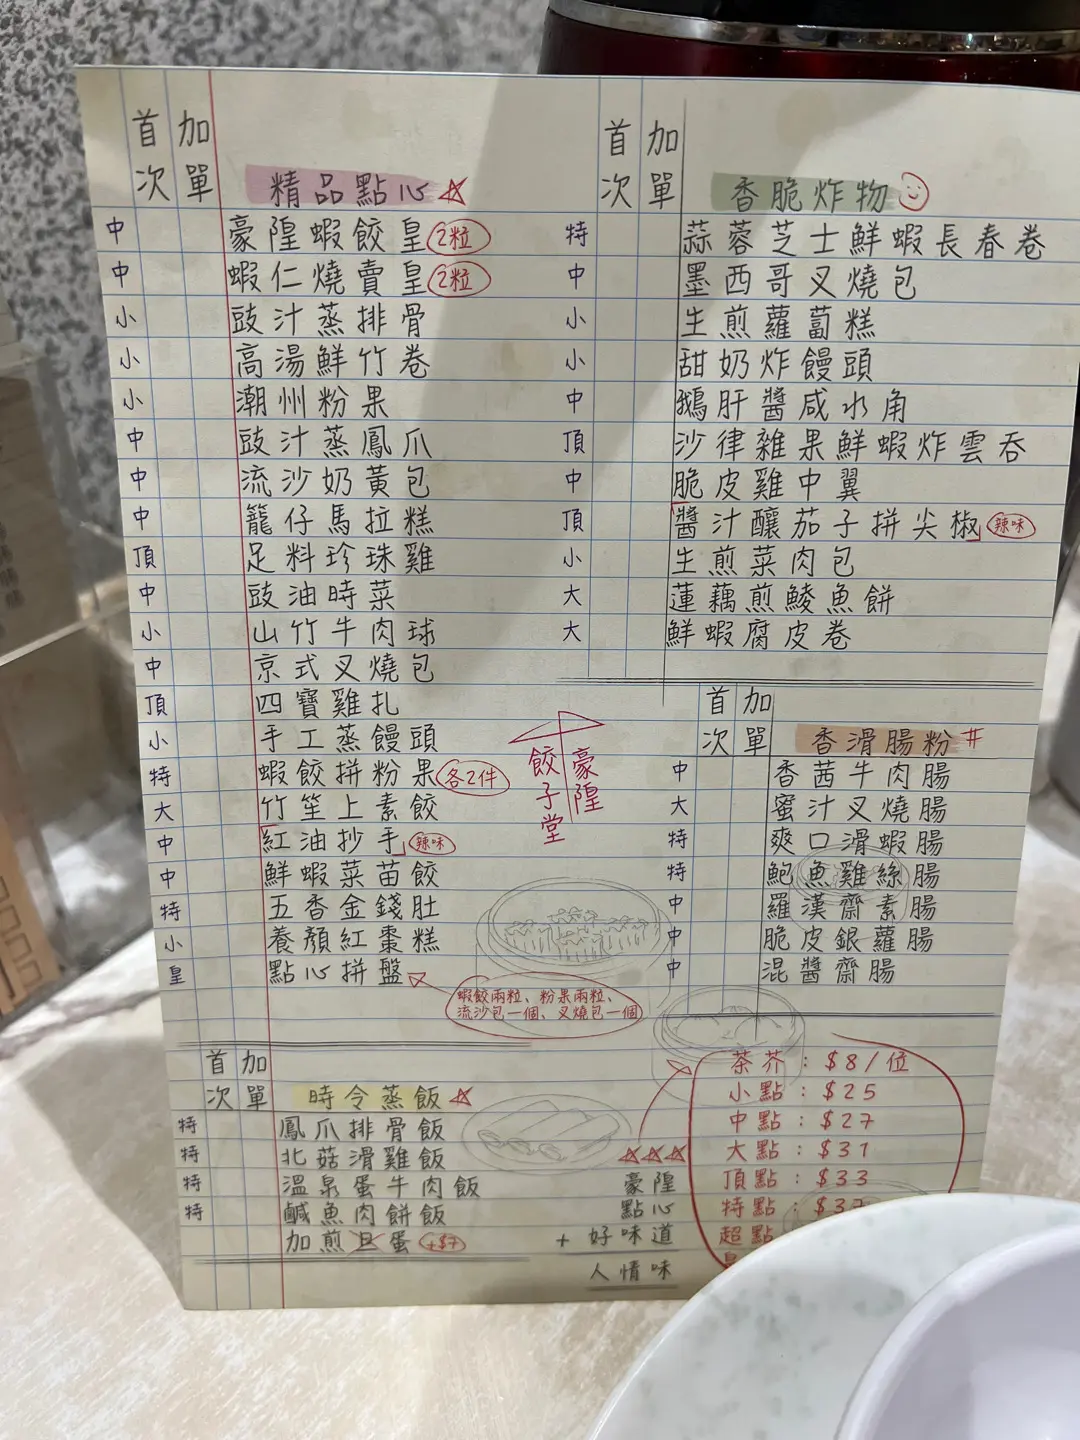 首 加
次 單 精品點心
中 豪隍蝦餃皇 2粒
中 蝦仁燒賣皇 2粒
小 豉汁蒸排骨
小 高湯鮮竹卷
小 潮州粉果
中 豉汁蒸鳳爪
中 流沙奶黃包
中 籠仔馬拉糕
頂 足料珍珠雞
中 豉油時菜
小 山竹牛肉球
中 京式叉燒包
頂 四寶雞扎
小 手工蒸饅頭
特 蝦餃拼粉果 各2件
大 竹笙上素餃
中 紅油抄手 辣味
中 鮮蝦菜苗餃
特 五香金錢肚
小 養顏紅棗糕
皇 點心拼盤
蝦餃兩粒、粉果兩粒、
流沙包一個、叉燒包一個
首 加
次 單 時令蒸飯
特 鳳爪排骨飯
特 北菇滑雞飯
特 溫泉蛋牛肉飯
特 鹹魚肉餅飯
加煎蛋 +$7
首 加
次 單 香脆炸物
特 蒜蓉芝士鮮蝦長春卷
中 墨西哥叉燒包
小 生煎蘿蔔糕
小 甜奶炸饅頭
中 鵝肝醬咸水角
頂 沙律雜果鮮蝦炸雲吞
中 脆皮雞中翼
頂 醬汁釀茄子拼尖椒 辣味
小 生煎菜肉包
大 蓮藕煎鯪魚餅
大 鮮蝦腐皮卷
豪隍
餃子堂
首 加
次 單 香滑腸粉
中 香茜牛肉腸
大 蜜汁叉燒腸
特 爽口滑蝦腸
特 鮑魚雞絲腸
中 羅漢齋素腸
中 脆皮銀蘿腸
中 混醬齋腸
茶芥：$8/位
小點：$25
中點：$27
大點：$31
頂點：$33
特點：$37
超點
豪隍
點心
+ 好味道
人情味